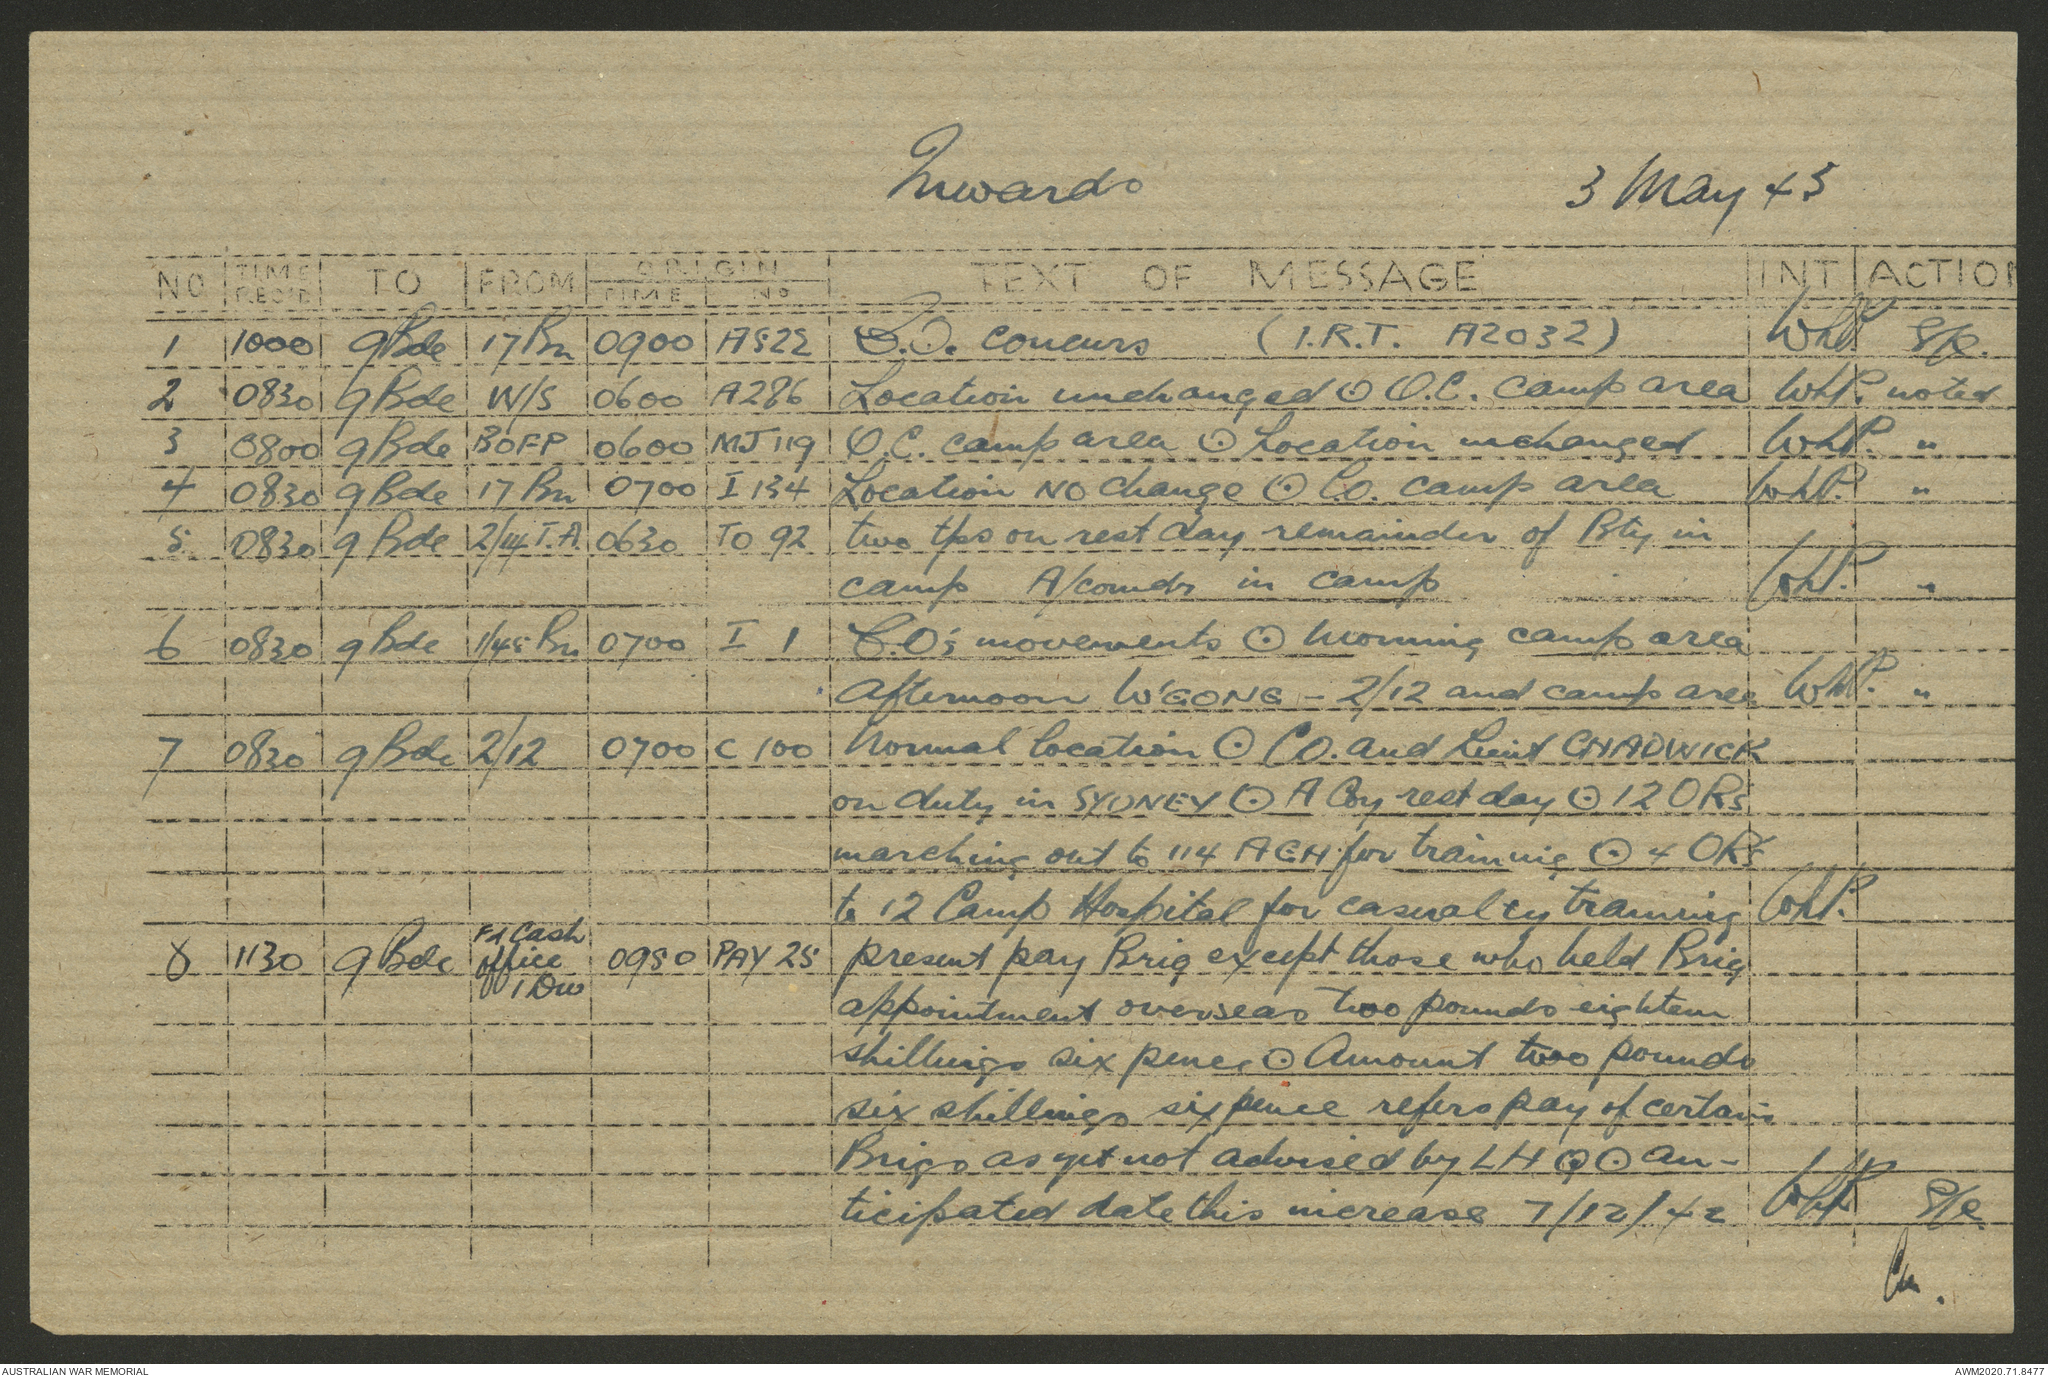 Inwards
3 May 43
NO TIME REC'D TO FROM ORIGIN TIME NO TEXT OF MESSAGE INT ACTION
1 1000 9 Bde 17 Bn 0900 A522 C.O. concurs (I.R.T. A2032) WhP. S/c.
2 0830 9 Bde W/S 0600 A286 Location unchanged ⊙ O.C. camp area WhP. noted
3 0800 9 Bde BOFP 0600 MJ119 O.C. camp area ⊙ Location unchanged WhP. "
4 0830 9 Bde 17 Bn 0700 I 134 Location NO change ⊙ Co. camp area WhP. "
5 0830 9 Bde 2/14 T.A. 0630 TO 92 two tps on rest day remainder of Bty in
camp A/comdr in camp WhP. "
6 0830 9 Bde 1/45 Bn 0700 I 1 C.O's movements ⊙ Morning camp area
Afternoon W'GONG - 2/12 and camp area WhP. "
7 0830 9 Bde 2/12 0700 C 100 Normal location ⊙ CO. and Lieut CHADWICK
on duty in SYDNEY ⊙ A Coy rest day ⊙ 12 ORs
marching out to 114 AGH for training ⊙ 4 ORs
to 12 Camp Hospital for casualty training WhP.
8 1130 9 Bde Fd Cash office 1 Div 0950 PAY 25 present pay Brig except those who held Brig
appointment overseas two pounds eighteen
shillings six pence ⊙ Amount two pounds
six shillings sixpence refers pay of certain
Brigs as yet not advised by LHQ ⊙ an-
ticipated date this increase 7/12/42 WhP S/c.
AUSTRALIAN WAR MEMORIAL
AWM2020.71.8477